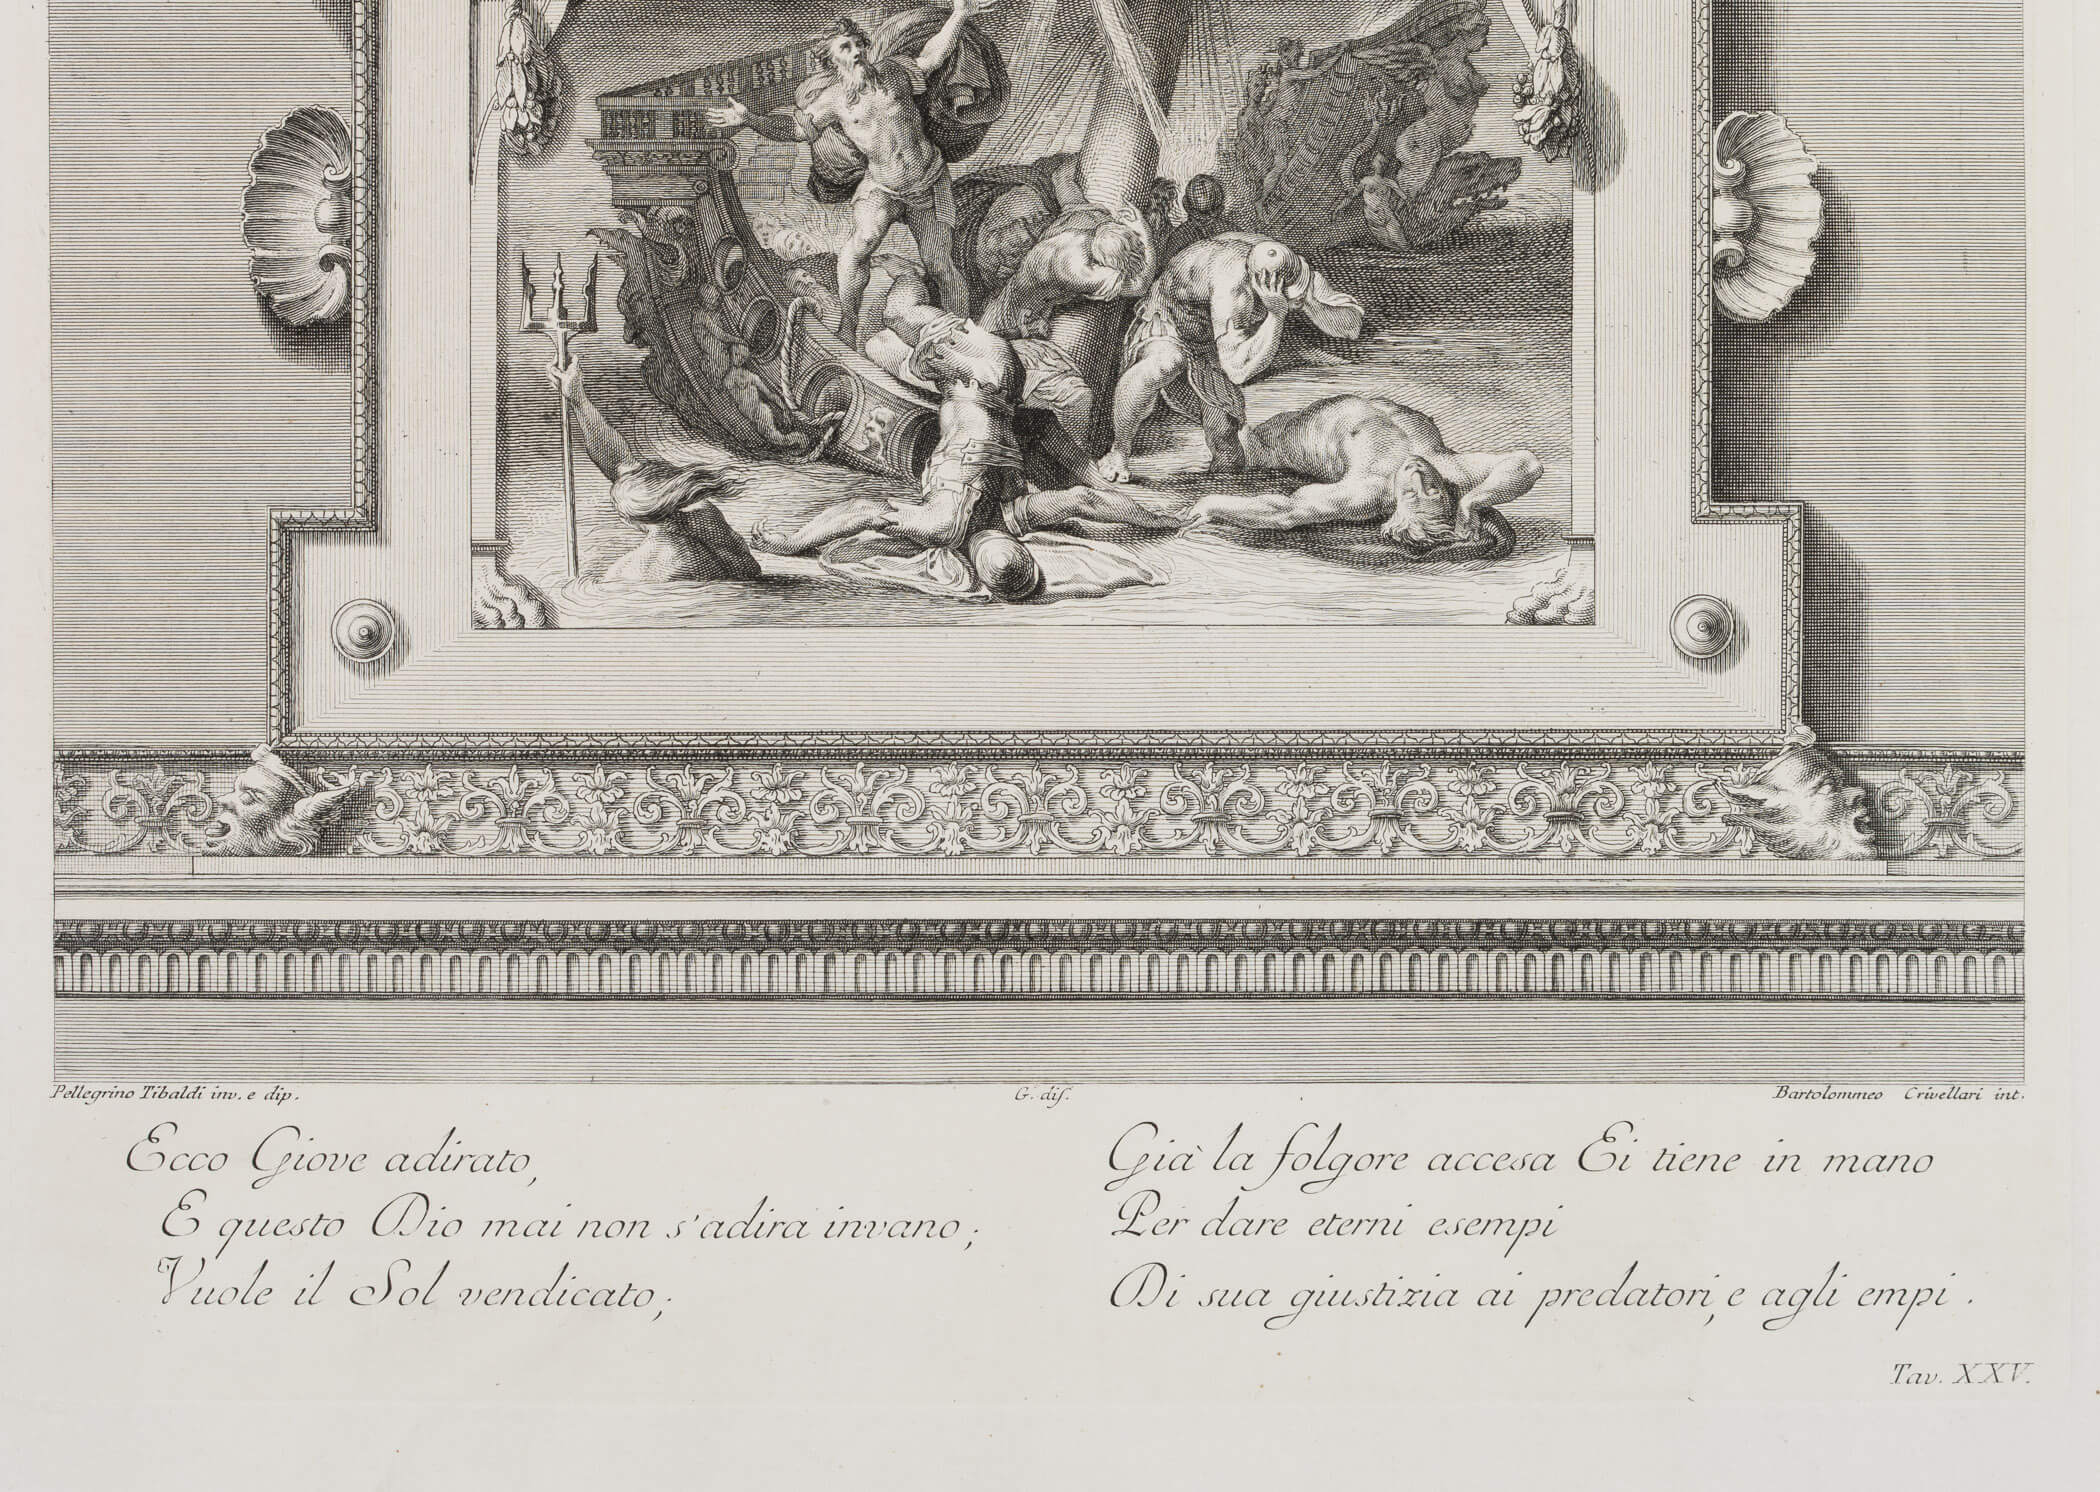 Pellegrino Tibaldi inv. e dip.
G. dis.
Bartolommeo Crivellari int.
Ecco Giove adirato,
E questo Dio mai non s'adira invano;
Vuole il Sol vendicato;
Già la folgore accesa Ei tiene in mano
Per dare eterni esempi
Di sua giustizia ai predatori, e agli empi.
Tav. XXV.